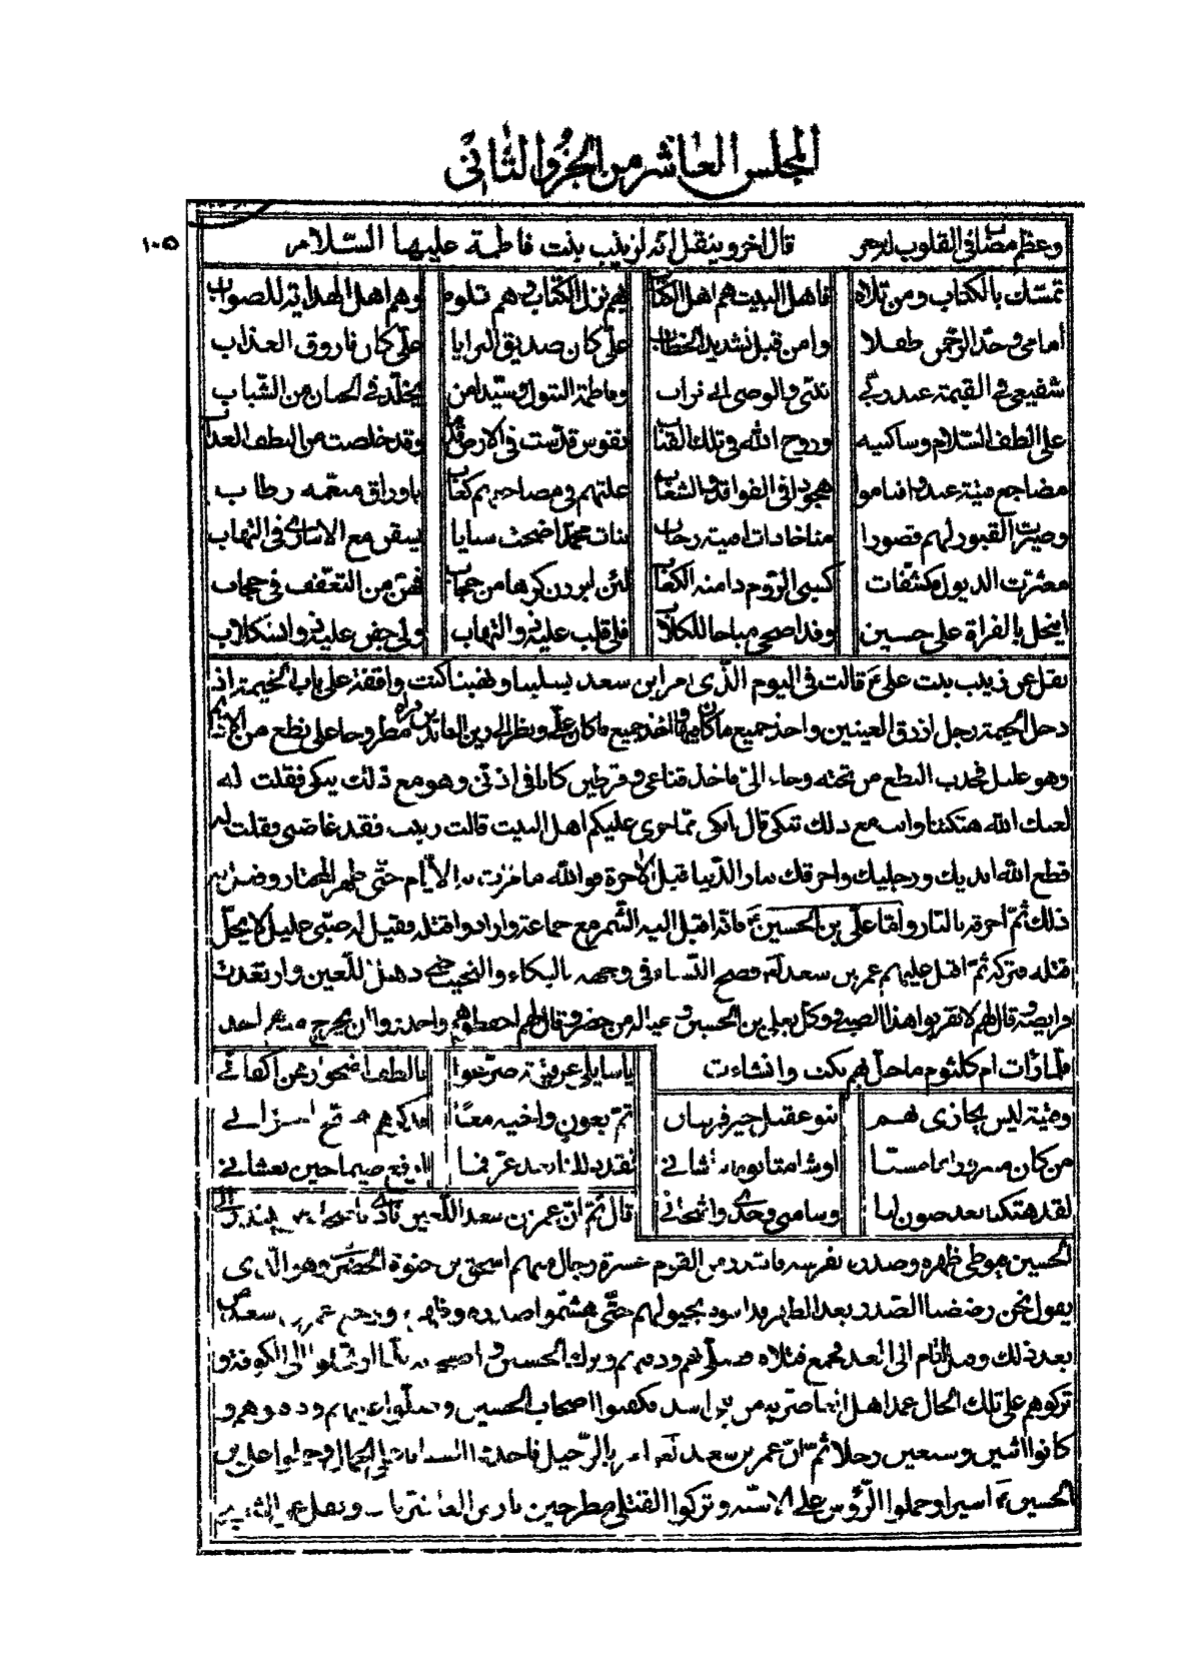 المجلس العاشر من الجزؤ الثانى
١٠٥
وعظم مصابى فى القلوب قال اخر وينقل انه لزينب بنت فاطمة عليها السّلام
تمسّك بالكتاب ومن تلاه فاهل البيت هم اهل الكتاب بهم نزل الكتاب وهم تلوه وهم اهل الهداية للصواب
امامى وحّد الرّحمن طفلا وامن قبل تشديد الخطاب علىّ كان صديق البرايا علىّ كان فاروق العذاب
شفيعى فى القيمة عند ربّى نبيّى والوصى ابو تراب وفاطمة البتول وسيّدا من يخلّد فى الجنان من الشّباب
على الطف السّلام وساكنيه وروح الله فى تلك القباب نفوس قدّست فى الارض قدما وقد خلصت من النطف العذاب
مضاجع فتية عبدوا فناموا هجودا فى الفدافد والشعاب علتهم فى مضاجعهم كعاب باوراق منعمه رطاب
وصيّرت القبور لهم قصورا مناخا ذات افنية رحاب بنات محمّد اضحت سبايا يسقن مع الاسارى فى النّهاب
مغبّرت الذيول مكشّفات كسبى الرّوم دامية الكعاب لئن ابرزن كرها من حجاب فهنّ من التعفّف فى حجاب
ايبخل بالفراة على حسين وقد اضحى مباحا للكلاب فلى قلب عليه ذو التهاب ولى جفن عليه ذو انسكاب
نقل عن زينب بنت على ع قالت فى اليوم الذّى امر ابن سعد بسلبنا ونهبنا كنت واقفة على باب الخيمة اذ
دخل الخيمة رجل ازرق العينين واخذ جميع ما كان فيها واخذ جميع ما كان علىّ ونظر الى زين العابدين فراه مطروحا على نطع من الاديم
وهو عليل فجذب النطع من تحته وجاء الىّ فاخذ قناعى وقرطين كانا فى اذنى وهو مع ذلك يبكى فقلت له
لعنك الله هتكتنا وانت مع ذلك تبكى قال ابكى ممّا جرى عليكم اهل البيت قالت زينب فقد غاضنى وقلت له
قطع الله يديك ورجليك واحرقك بنار الدّنيا قبل الاخرة فوالله ما مرّت به الايّام حتّى ظهر المختار وفعل به
ذلك ثمّ احرقه بالنار وامّا علىّ بن الحسين ع فانه اقبل اليه الشّمر مع جماعة وارادوا قتله فقيل له صبّى عليل لا يحلّ
قتله فتركه ثمّ اقبل عليهم عمر بن سعد فصحن النّساء فى وجهه بالبكاء والنحيب حتّى ذهل اللّعين وارتعدت
فرايصه وقال لهم لا تقربوا هذا الصبى ووكل بعلى بن الحسين وعياله من حضر وقال لهم احفظوهم واحذروا ان يخرج منهم احد
فلمّا رات ام كلثوم ما حل بهم بكت وانشات
يا سايلى عن فتية صرّعوا بالطف اضحوا رهن اكفانى
وفتية ليس يجازى بهم بنو عقيل خير فرسان ثمّ بعون واخيه معّا
من كان مسرورا بما مسّنا او شامتا يوما بنا شانى
لقد هتكنا بعد صون لنا وسامنى وجدى واشجانى قال ثمّ انّ عمر بن سعد اللّعين نادى
الحسين فيوطى ظهره وصدره بفرسه فابتدر من القوم عشرة رجال منهم اسحق بن حنوة الحضرمى وهو الّذى
يقول نحن رضضنا الصّدر بعد الظهر فداسوه بخيولهم حتّى هشّموا صدره وظهره ورجع عمر بن سعد
بعد ذلك الى الغد فجمع قتلاه وصلّى عليهم ودفنهم وترك الحسين واصحابه فلمّا ارتحلوا الى الكوفة و
تركوهم على تلك الحال عمد اهل الغاضرية من بنى اسد فكفنوا اصحاب الحسين وصلّوا عليهم ودفنوهم و
كانوا اثنين وسبعين رجلا ثمّ انّ عمر بن سعد امر بالرّحيل
الحسين ع اسيرا وحملوا الرّؤس على الاسنّة وتركوا القتلى مطرحين بارض الغاضريات ونقل عن الشعبى